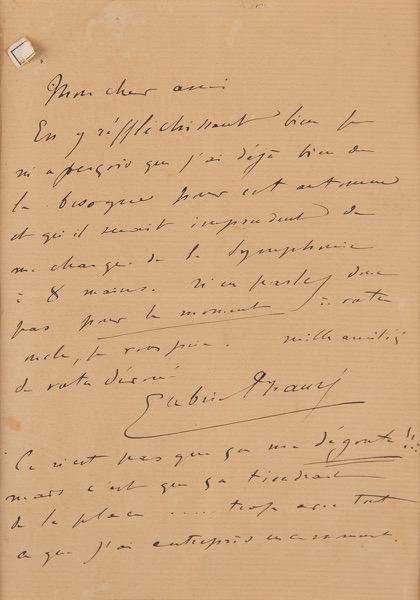 Mon cher ami
En y réfléchissant bien je
m'aperçois que j'ai déjà bien de
la besogne pour cet automne
et qu'il serait imprudent de
me charger de la Symphonie
à 8 mains. N'en parlez donc
pas pour le moment à votre
oncle, je vous prie. mille amitiés
de votre dévoué
Gabriel Fauré
Ce n'est pas que ça me dégoute !!!
mais c'est que ça tiendrait
de la place ..... trop avec tout
ce que j'ai entrepris en ce moment.